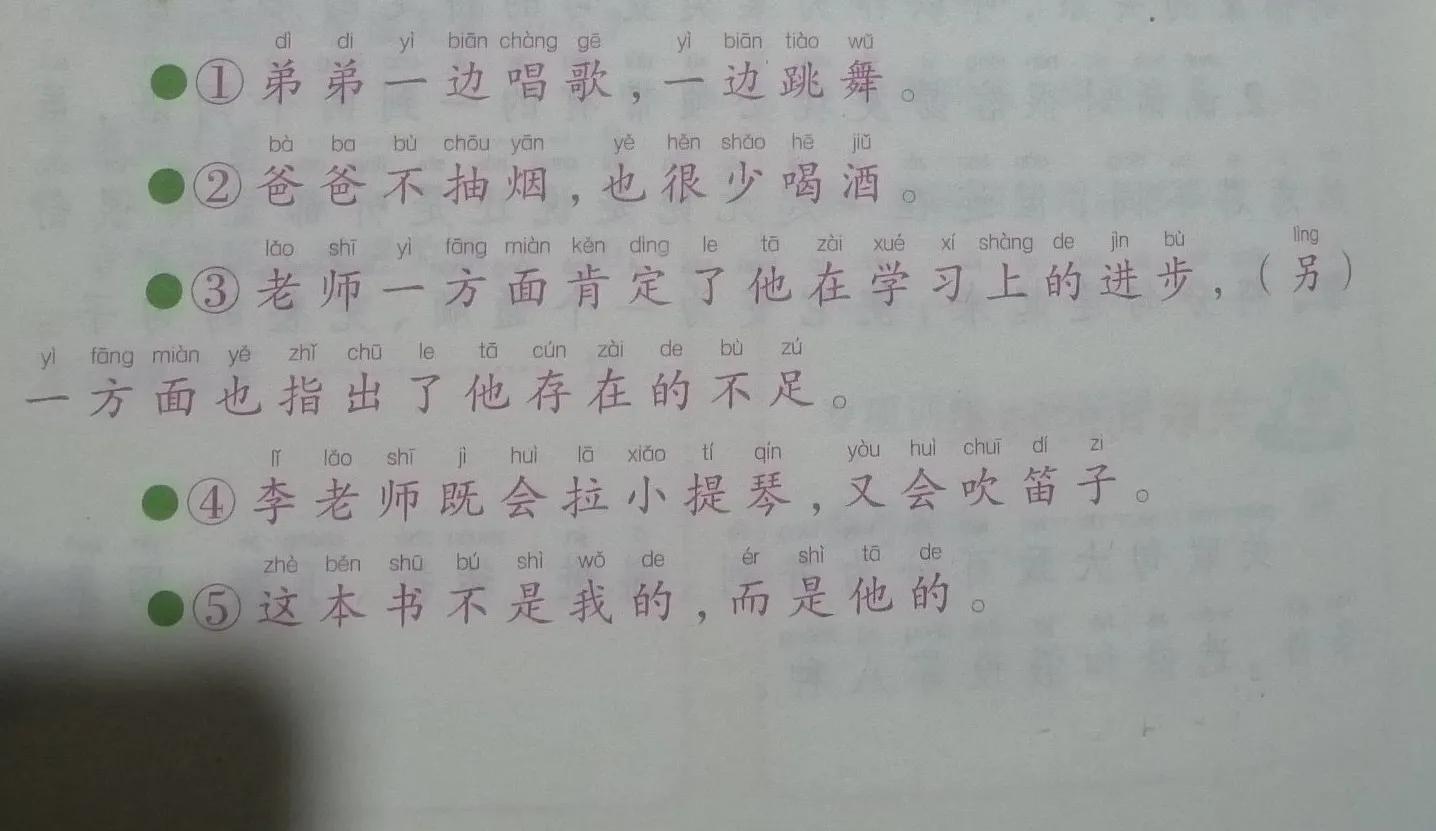 dì di yì biān chàng gē yì biān tiào wǔ
①弟弟一边唱歌，一边跳舞。
bà ba bù chōu yān yě hěn shǎo hē jiǔ
②爸爸不抽烟，也很少喝酒。
lǎo shī yì fāng miàn kěn dìng le tā zài xué xí shàng de jìn bù lìng
③老师一方面肯定了他在学习上的进步，（另）
yì fāng miàn yě zhǐ chū le tā cún zài de bù zú
一方面也指出了他存在的不足。
lǐ lǎo shī jì huì lā xiǎo tí qín yòu huì chuī dí zi
④李老师既会拉小提琴，又会吹笛子。
zhè běn shū bú shì wǒ de ér shì tā de
⑤这本书不是我的，而是他的。